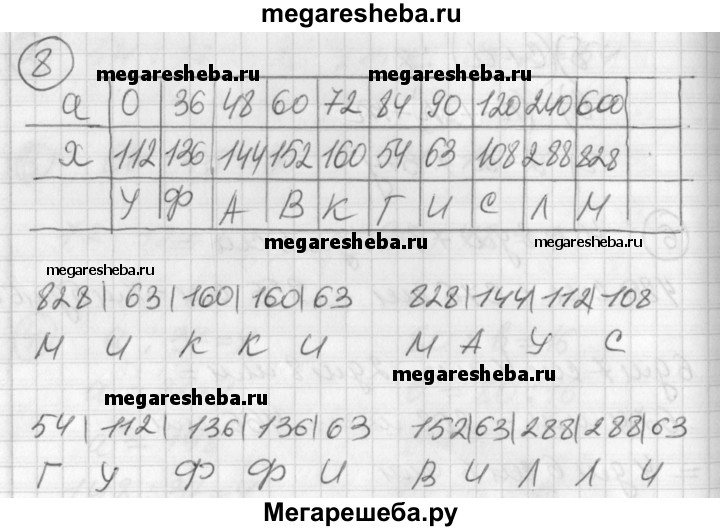 megaresheba.ru
8
megaresheba.ru megaresheba.ru
a 0 36 48 60 72 84 90 120 240 600
x 112 136 144 152 160 54 63 108 288 828
У Ф А В К Г И С Л М
megaresheba.ru megaresheba.ru
megaresheba.ru
828 | 63 | 160 | 160 | 63 828 | 144 | 112 | 108
М И К К И М А У С
megaresheba.ru
megaresheba.ru
54 | 112 | 136 | 136 | 63 152 | 63 | 288 | 288 | 63
Г У Ф Ф И В И Л Л И
Мегарешеба.ру